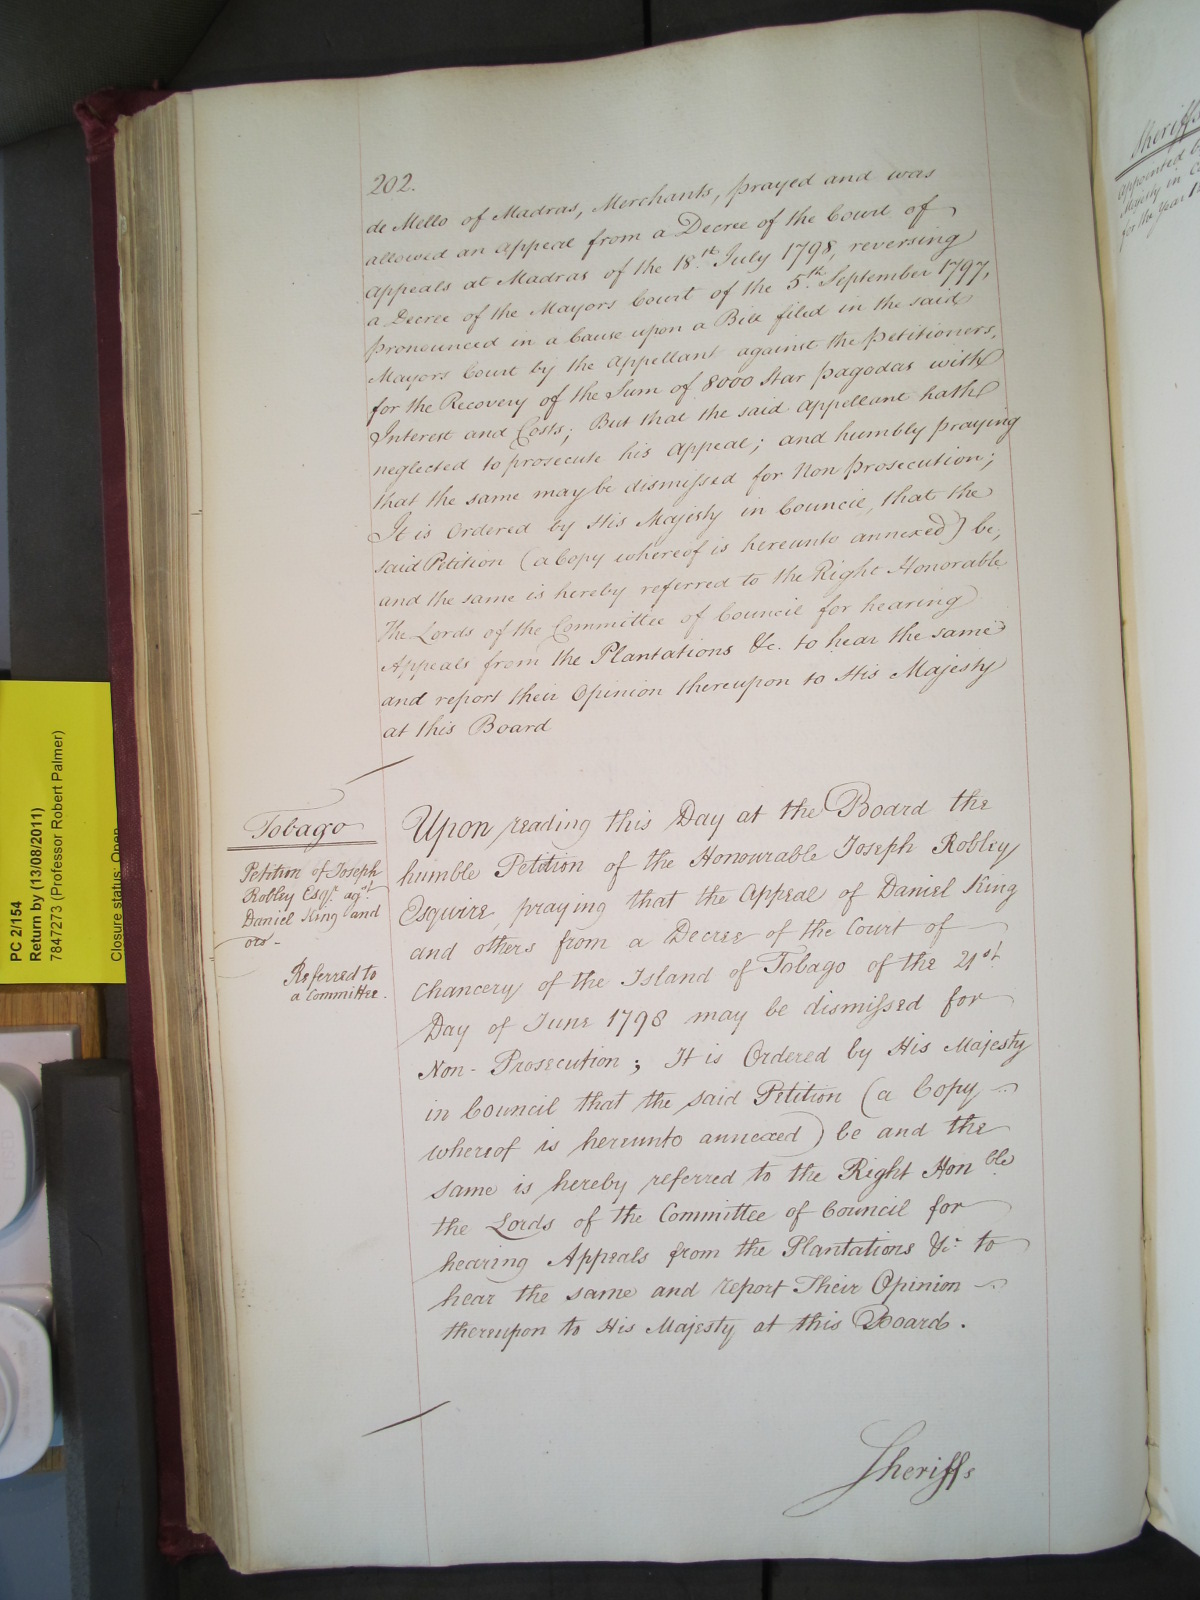 202.
de Mello of Madras, Merchants, prayed and was
allowed an Appeal from a Decree of the Court of
Appeals at Madras of the 18.th July 1798, reversing
a Decree of the Mayors Court of the 5.th September 1797,
pronounced in a Cause upon a Bill filed in the said
Mayors Court by the Appellant against the Petitioners,
for the Recovery of the Sum of 8000 Star Pagodas with
Interest and Costs; But that the said Appellant hath
neglected to prosecute his Appeal; and humbly praying
that the same may be dismissed for Non Prosecution;
It is Ordered by His Majesty in Council, that the
said Petition (a Copy whereof is hereunto annexed) be,
and the same is hereby referred to the Right Honorable
The Lords of the Committee of Council for hearing
Appeals from the Plantations &c. to hear the same
and report their Opinion thereupon to His Majesty
at this Board
Tobago
Petition of Joseph
Robley Esqr. agst.
Daniel King and
ors -
Referred to
a Committee.
Upon reading this Day at the Board the
humble Petition of the Honourable Joseph Robley
Esquire, praying that the Appeal of Daniel King
and others from a Decree of the Court of
Chancery of the Island of Tobago of the 21st
Day of June 1798 may be dismissed for
Non-Prosecution; It is Ordered by His Majesty
in Council that the said Petition (a Copy
whereof is hereunto annexed) be and the
same is hereby referred to the Right Honble
the Lords of the Committee of Council for
hearing Appeals from the Plantations &c. to
hear the same and report Their Opinion
thereupon to His Majesty at this Board.
Sheriffs
Sheriffs
appointed
Majesty in
for the Year
PC 2/154
Return by (13/08/2011)
7847273 (Professor Robert Palmer)
Closure status: Open